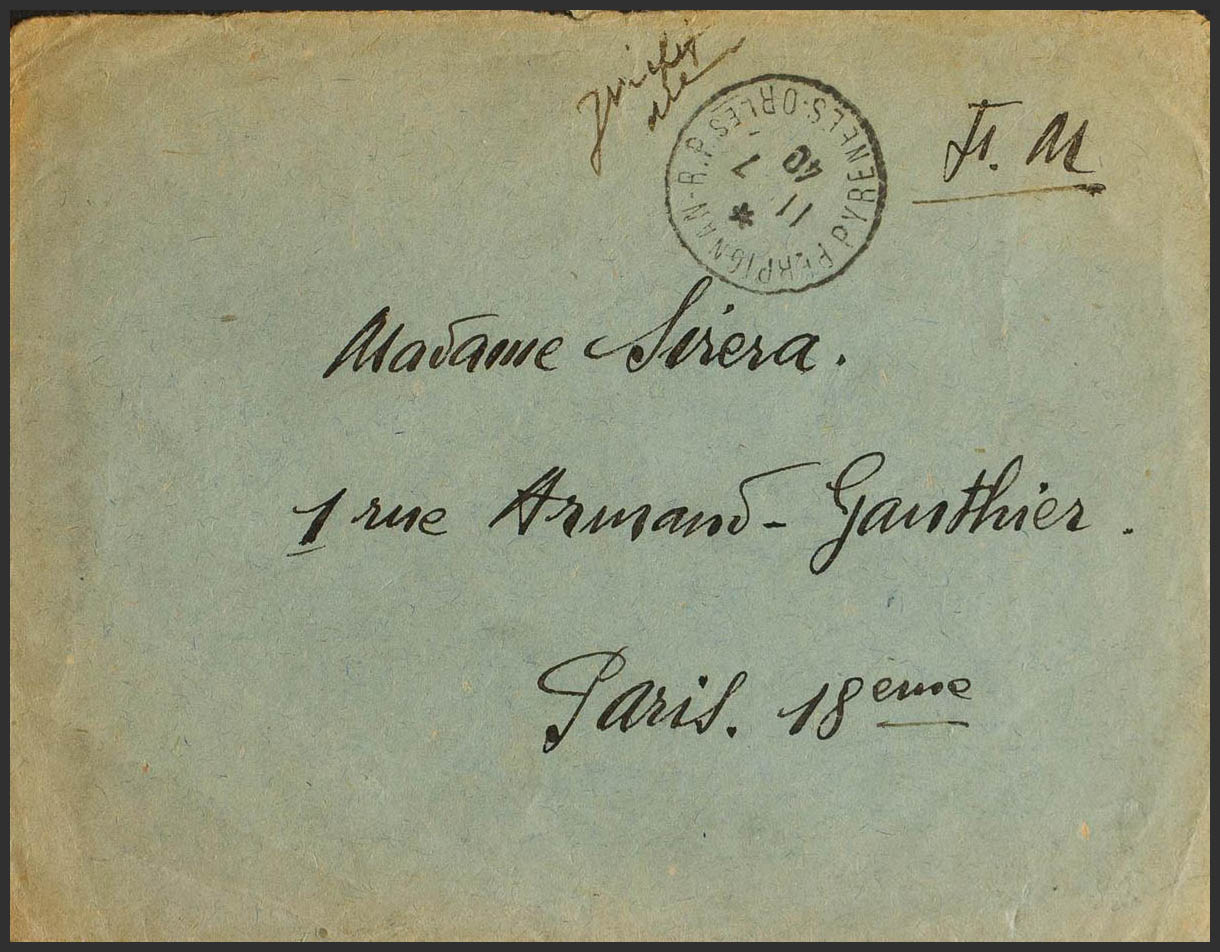 juillet
F. M
PERPIGNAN-R.P.
PYRENEES-ORLES
*
11
7
40
Madame Sirera.
1 rue Armand-Gauthier.
Paris. 18eme